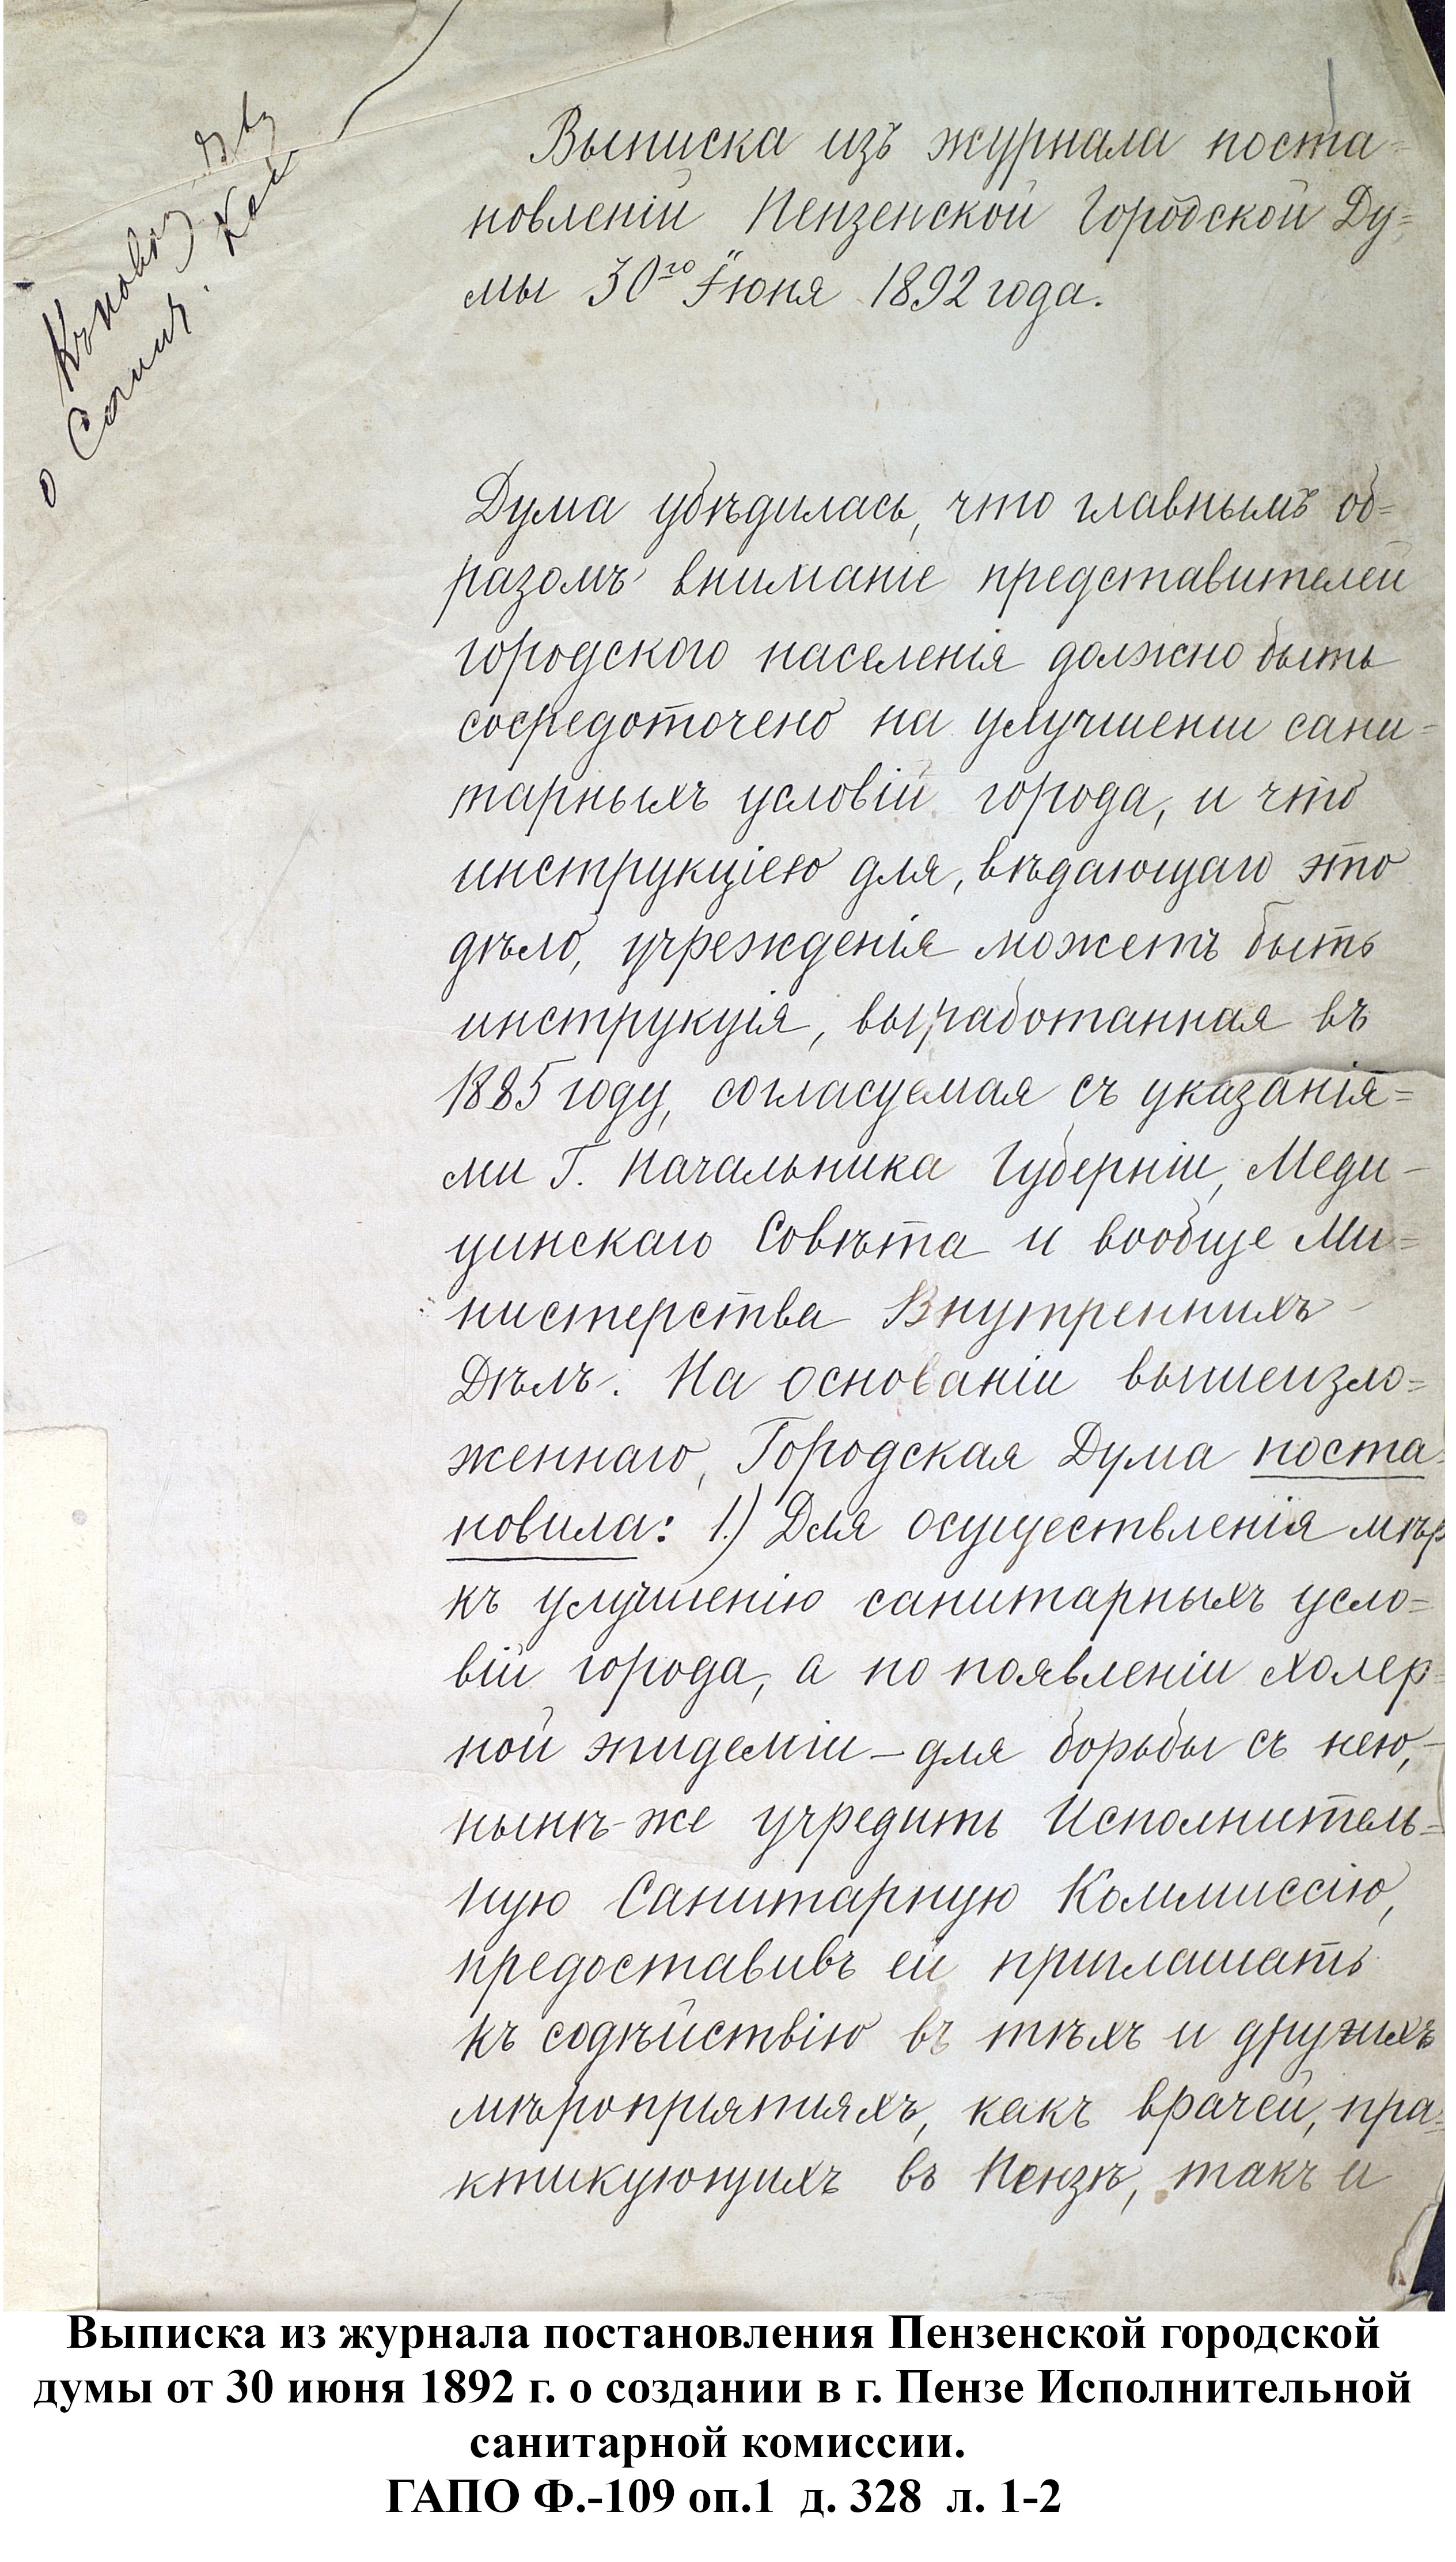 о Санит. Ком
Выписка изъ журнала поста=
новленій Пензенской Городской Ду=
мы 30го Іюня 1892 года.
Дума убѣдилась, что главнымъ об=
разомъ вниманіе представителей
городского населенія должно быть
сосредоточено на улучшеніи сани-
тарныхъ условій города, и что
инструкціею для, вѣдающаго это
дѣло, учрежденія можетъ быть
инструкція, выработанная въ
1885 году, согласуемая съ указанія=
ми Г. Начальника Губерніи, Меди-
цинскаго Совѣта и вообще Ми=
нистерства Внутреннихъ
Дѣлъ. На основаніи вышеизло=
женнаго, Городская Дума поста-
новила: 1.) Для осуществленія мѣръ
къ улучшенію санитарныхъ усло=
вій города, а по появленіи холер-
ной эпидеміи – для борьбы съ нею,-
нынѣ-же учредить Исполнитель=
ную Санитарную Коммиссію,
предоставивъ ей приглашать
къ содѣйствію въ тѣхъ и другихъ
мѣропріятіяхъ, какъ врачей, пра=
ктикующихъ въ Пензѣ, такъ и
Выписка из журнала постановления Пензенской городской
думы от 30 июня 1892 г. о создании в г. Пензе Исполнительной
санитарной комиссии.
ГАПО Ф.-109 оп.1 д. 328 л. 1-2